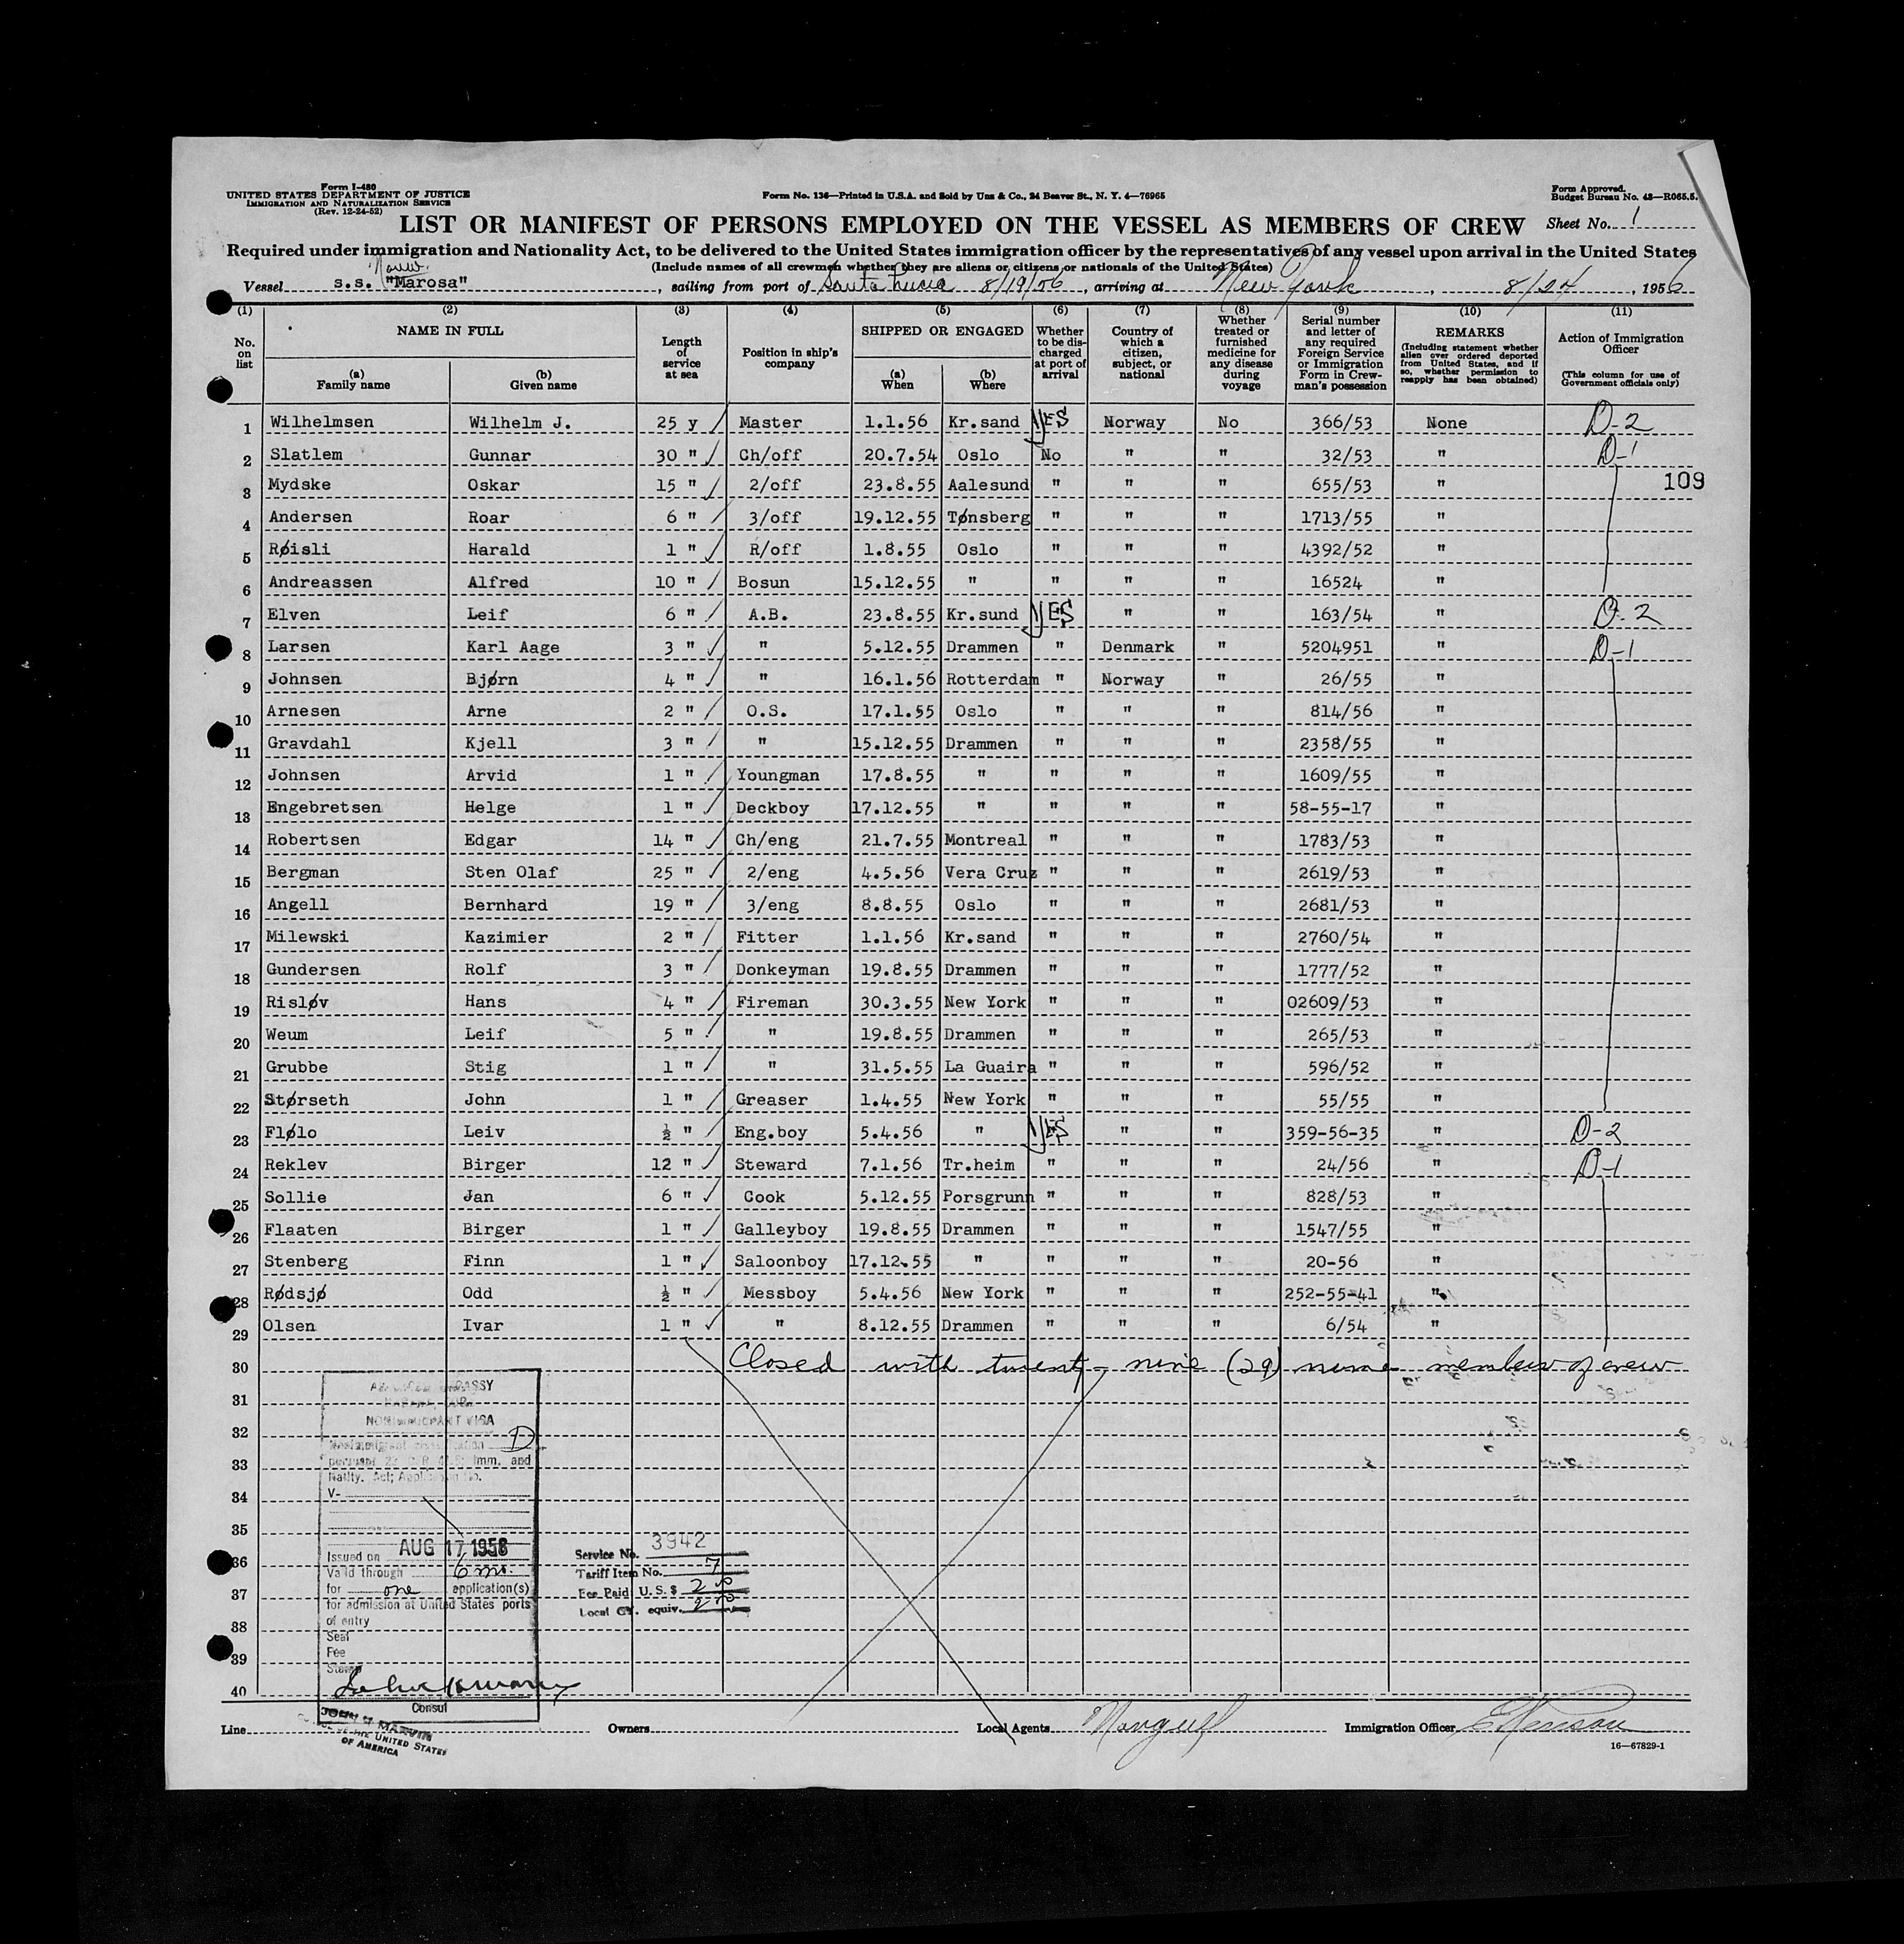 Form I-480
UNITED STATES DEPARTMENT OF JUSTICE
IMMIGRATION AND NATURALIZATION SERVICE
(Rev. 12-24-52)
Form No. 136—Printed in U.S.A. and Sold by Unz & Co., 24 Beaver St., N. Y. 4—76965
Form Approved.
Budget Bureau No. 43—R065.5.
LIST OR MANIFEST OF PERSONS EMPLOYED ON THE VESSEL AS MEMBERS OF CREW
Sheet No. 1
Required under immigration and Nationality Act, to be delivered to the United States immigration officer by the representatives of any vessel upon arrival in the United States
(Include names of all crewmen whether they are aliens or citizens or nationals of the United States)
Vessel s.s. "Marosa" , sailing from port of Santa Lucia 8/19/56 , arriving at New York , 8/24 , 1956
(1) (2) (3) (4) (5) (6) (7) (8) (9) (10) (11)
No. on list
NAME IN FULL
(a) Family name
(b) Given name
Length of service at sea
Position in ship's company
SHIPPED OR ENGAGED
(a) When
(b) Where
Whether to be discharged at port of arrival
Country of which a citizen, subject, or national
Whether treated or furnished medicine for any disease during voyage
Serial number and letter of any required Foreign Service or Immigration Form in Crewman's possession
REMARKS
(Including statement whether alien ever ordered deported from United States, and if so, whether permission to reapply has been obtained)
Action of Immigration Officer
(This column for use of Government officials only)
1 Wilhelmsen Wilhelm J. 25 y Master 1.1.56 Kr.sand YES Norway No 366/53 None D-2
2 Slatlem Gunnar 30 " Ch/off 20.7.54 Oslo No " " 32/53 " D-1
109
3 Mydske Oskar 15 " 2/off 23.8.55 Aalesund " " " 655/53 "
4 Andersen Roar 6 " 3/off 19.12.55 Tønsberg " " " 1713/55 "
5 Røisli Harald 1 " R/off 1.8.55 Oslo " " " 4392/52 "
6 Andreassen Alfred 10 " Bosun 15.12.55 " " " " 16524 "
7 Elven Leif 6 " A.B. 23.8.55 Kr.sund YES " " 163/54 " D-2
8 Larsen Karl Aage 3 " " 5.12.55 Drammen " Denmark " 5204951 " D-1
9 Johnsen Bjørn 4 " " 16.1.56 Rotterdam " Norway " 26/55 "
10 Arnesen Arne 2 " O.S. 17.1.55 Oslo " " " 814/56 "
11 Gravdahl Kjell 3 " " 15.12.55 Drammen " " " 2358/55 "
12 Johnsen Arvid 1 " Youngman 17.8.55 " " " " 1609/55 "
13 Engebretsen Helge 1 " Deckboy 17.12.55 " " " " 58-55-17 "
14 Robertsen Edgar 14 " Ch/eng 21.7.55 Montreal " " " 1783/53 "
15 Bergman Sten Olaf 25 " 2/eng 4.5.56 Vera Cruz " " " 2619/53 "
16 Angell Bernhard 19 " 3/eng 8.8.55 Oslo " " " 2681/53 "
17 Milewski Kazimier 2 " Fitter 1.1.56 Kr.sand " " " 2760/54 "
18 Gundersen Rolf 3 " Donkeyman 19.8.55 Drammen " " " 1777/52 "
19 Risløv Hans 4 " Fireman 30.3.55 New York " " " 02609/53 "
20 Weum Leif 5 " " 19.8.55 Drammen " " " 265/53 "
21 Grubbe Stig 1 " " 31.5.55 La Guaira " " " 596/52 "
22 Størseth John 1 " Greaser 1.4.55 New York " " " 55/55 "
23 Flølo Leiv ½ " Eng.boy 5.4.56 " YES " " 359-56-35 " D-2
24 Reklev Birger 12 " Steward 7.1.56 Tr.heim " " " 24/56 " D-1
25 Sollie Jan 6 " Cook 5.12.55 Porsgrunn " " " 828/53 "
26 Flaaten Birger 1 " Galleyboy 19.8.55 Drammen " " " 1547/55 "
27 Stenberg Finn 1 " Saloonboy 17.12.55 " " " " 20-56 "
28 Rødsjø Odd ½ " Messboy 5.4.56 New York " " " 252-55-41 "
29 Olsen Ivar 1 " " 8.12.55 Drammen " " " 6/54 "
30 Closed with twenty-nine (29) members of crew
31
32
33
34
35
36
37
38
39
40
NONIMMIGRANT VISA
D
Imm. and
Natlty. Act; Application No.
V-
Issued on AUG 17 1956
Valid through 6 mo.
for one application(s)
for admission at United States ports
of entry
Seal
Fee
Stamp
Consul
JOHN MARVIN
CONSUL OF THE UNITED STATES
OF AMERICA
Service No. 3942
Tariff Item No. 7
Fee Paid U.S. $ 2.50
Local CY. equiv. 2.50
Line Owners Local Agents Norgulf Immigration Officer
16—67829-1